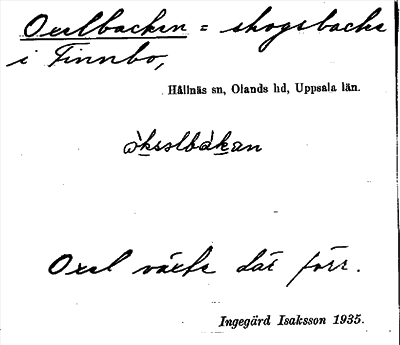 Oxelbacken = skogsbacke
i Finnbo,
Hållnäs sn, Olands hd, Uppsala län.
ò̱ksəlbàkan
Oxel växte där förr.
Ingegärd Isaksson 1935.